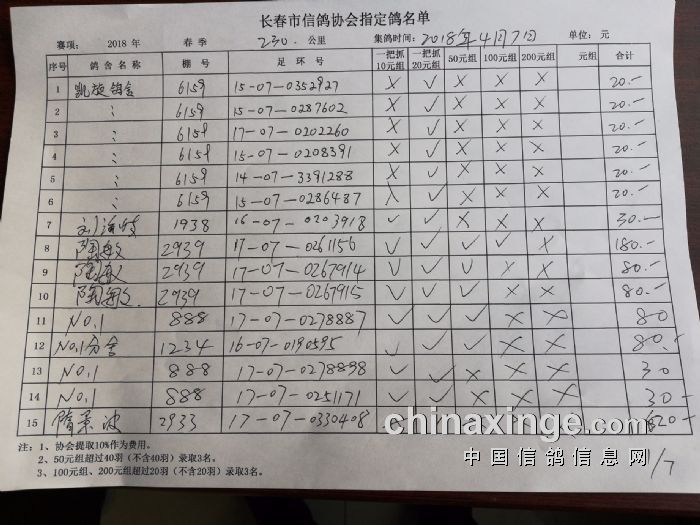 长春市信鸽协会指定鸽名单
赛项: 2018 年 春季 230. 公里 集鸽时间: 2018年4月7日 单位: 元
序号 鸽舍名称 棚号 足环号 一把抓10元组 一把抓20元组 50元组 100元组 200元组 元组 合计
1 凯旋鸽舍 6159 15-07-0352927 × ✓ × × × 20.-
2 〃 6159 15-07-0287602 × ✓ × × × 20.-
3 〃 6159 17-07-0202260 × ✓ × × × 20.-
4 〃 6159 15-07-0208391 × ✓ × × × 20.-
5 〃 6159 14-07-3391288 × ✓ × × × 20.-
6 〃 6159 15-07-0286487 × ✓ × × × 20.-
7 1938 16-07-0203918 ✓ ✓ × × × 30.-
8 陶敏 2939 17-07-0261156 ✓ ✓ ✓ ✓ × 180.-
9 陶敏 2939 17-07-0267914 ✓ ✓ ✓ × × 80.-
10 陶敏. 2939 17-07-0267915 ✓ ✓ ✓ × × 80.-
11 NO.1 888 17-07-0278887 ✓ ✓ ✓ × × 80
12 NO.1分舍 1234 16-07-0190595 ✓ ✓ ✓ × × 80.-
13 NO.1 888 17-07-0278898 ✓ ✓ × × × 30
14 NO.1 888 17-07-0251171 ✓ ✓ × × × 30-
15 隋景波 2933 17-07-0330408 20.-
注: 1、协会提取10%作为费用。
2、50元组超过40羽 (不含40羽) 录取3名。
3、100元组、200元组超过20羽 (不含20羽) 录取3名。
1/7
chinaxinge.com
中国信鸽信息网